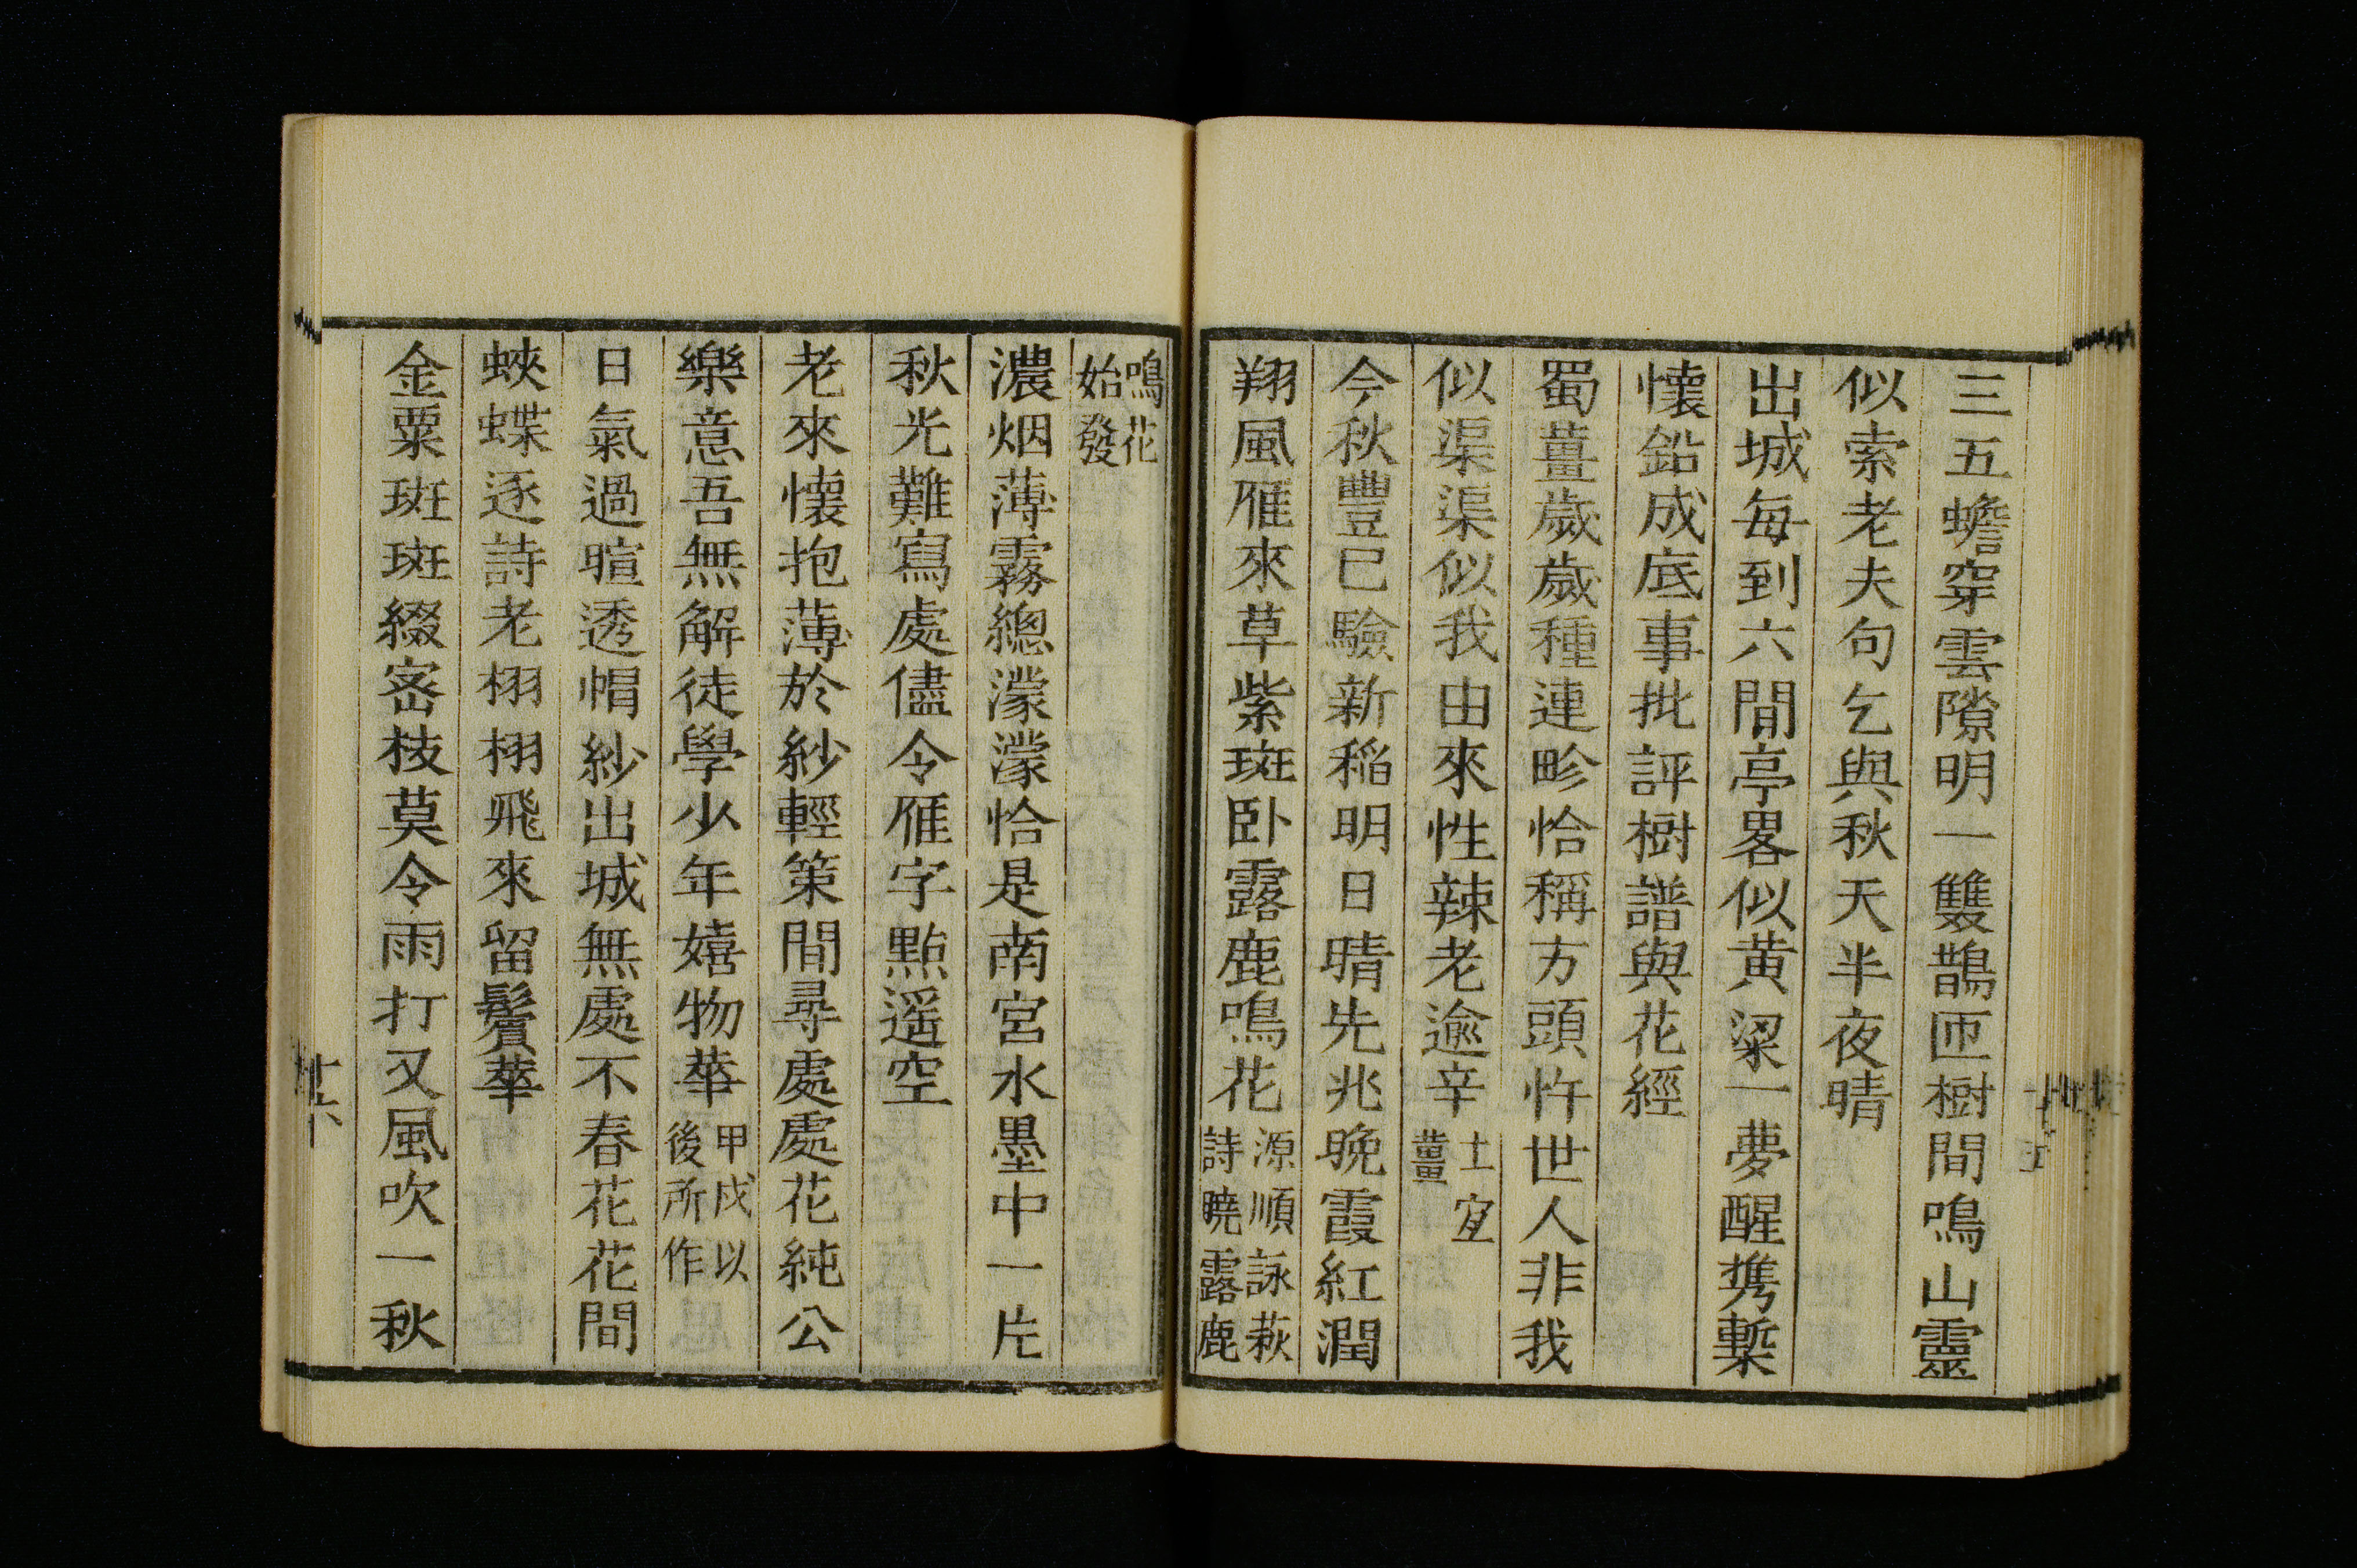 三五蟾穿雲隙明一雙鵲匝樹間鳴山靈
似索老夫句乞與秋天半夜晴
出城每到六閒亭畧似黄粱一夢醒携槧
懷鉛成底事批評樹譜與花經
蜀薑歲歲種連畛恰稱方頭忤世人非我
似渠渠似我由來性辣老逾辛
土宜
薑
今秋豐已驗新稲明日晴先兆晚霞紅潤
翔風雁來草紫斑卧露鹿鳴花
源順詠萩
詩曉露鹿
鳴花
始發
濃烟薄霧總濛濛恰是南宮水墨中一片
秋光難寫處儘令雁字點遥空
老來懷抱薄於紗輕策閒尋處處花純公
樂意吾無解徒學少年嬉物華
甲戌以
後所作
日氣過暄透帽紗出城無處不春花花間
蛺蝶逐詩老栩栩飛來留鬢華
金粟斑斑綴密枝莫令雨打又風吹一秋